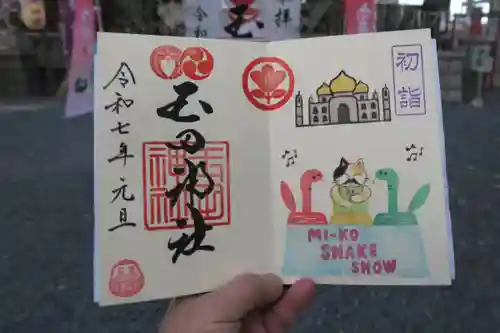 初詣
玉田神社
令和七年 元旦
MI-KO
SNAKE
SHOW